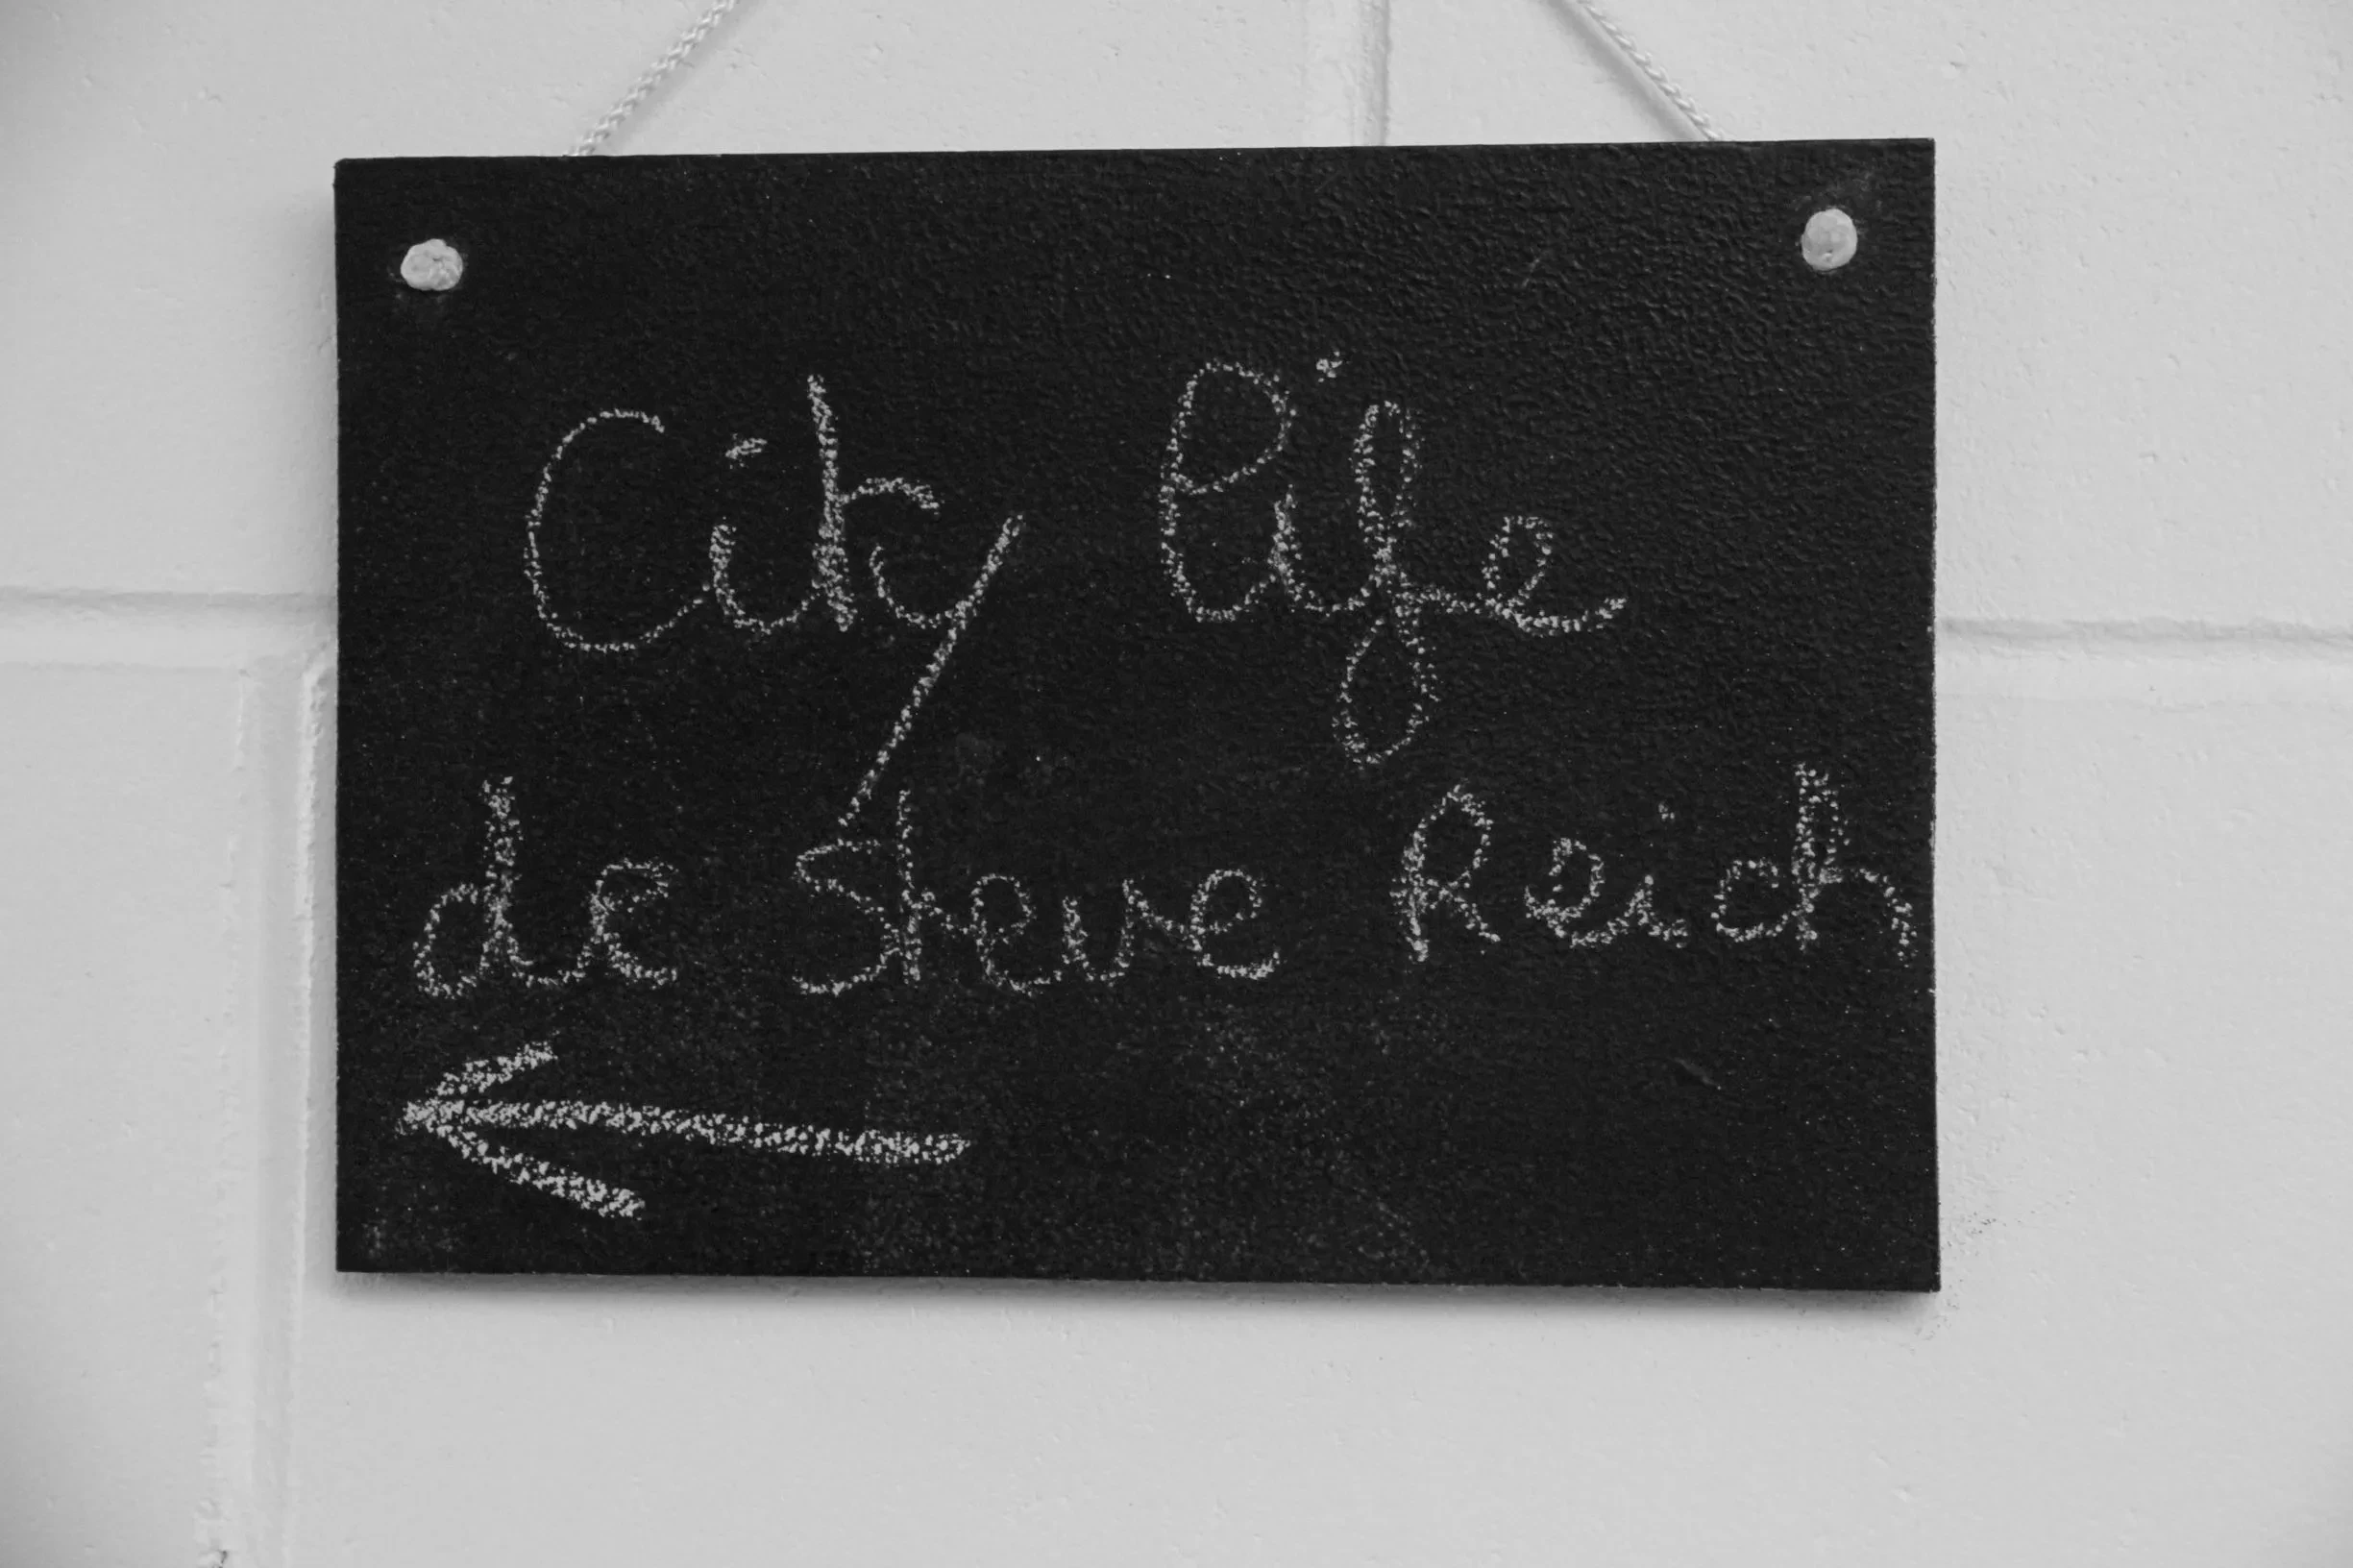 City life
de Steve Reich